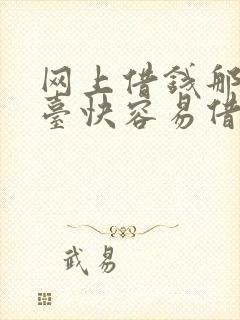 网上借钱那
臺快容易借
武易